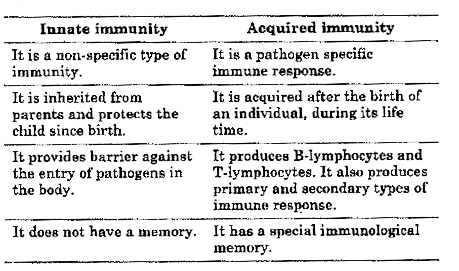 Innate immunity Acquired immunity
It is a non-specific type of immunity.
It is a pathogen specific immune response.
It is inherited from parents and protects the child since birth.
It is acquired after the birth of an individual, during its life time.
It provides barrier against the entry of pathogens in the body.
It produces B-lymphocytes and T-lymphocytes. It also produces primary and secondary types of immune response.
It does not have a memory.
It has a special immunological memory.